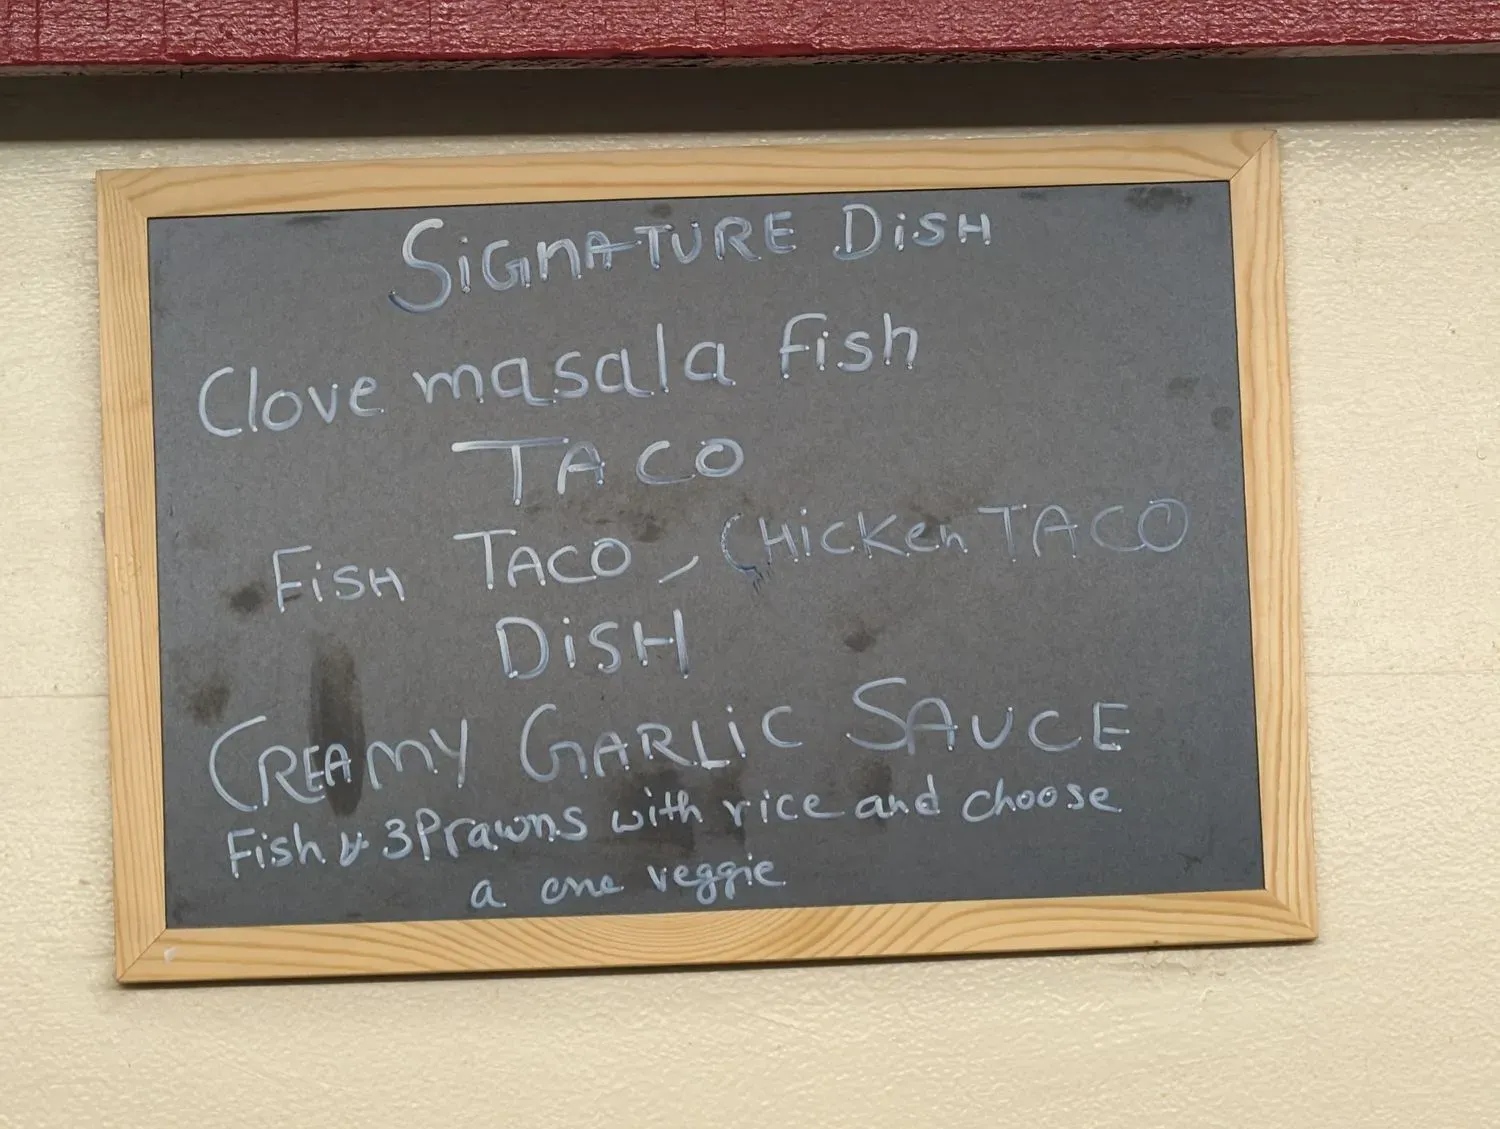 SiGNATURE DiSH
Clove masala fish
TACO
FiSH TACO, CHicKen TACO
DiSH
CREAMY GARLiC SAUCE
Fish & 3 Prawns with rice and choose
a one veggie